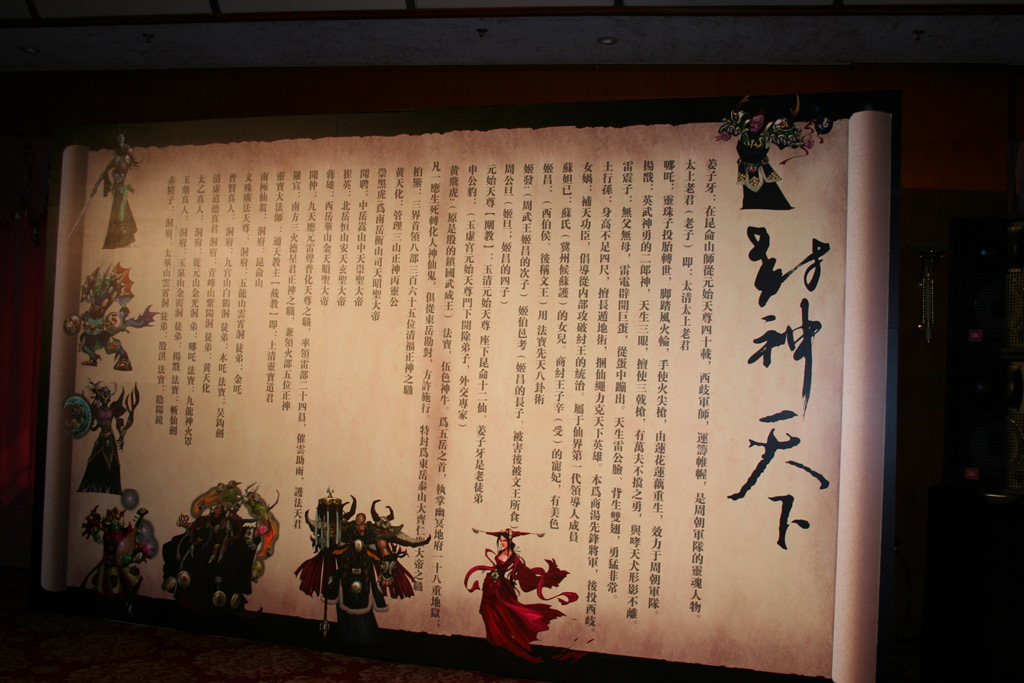 封神天下
姜子牙：在昆侖山師從元始天尊四十載，西歧軍師，運籌帷幄，是周朝軍隊的靈魂人物。
太上老君（老子）即：太清太上老君
哪吒：靈珠子投胎轉世，腳踏風火輪，手使火尖槍，由蓮花蓮藕重生，效力于周朝軍隊。
楊戩：英武神勇的二郎神，天生三眼，擅使三戟槍，有萬夫不擋之勇，與哮天犬形影不離。
雷震子：無父無母，雷電辟開巨蛋，從蛋中蹦出。天生雷公臉、背生雙翅，勇猛非常。
土行孫：身高不足四尺，擅長遁地術，捆仙繩力克天下英雄。本爲商湯先鋒將軍，後投西歧。
女媧：補天功臣，倡導從內部攻破紂王的統治。屬于仙界第一代領導人成員
蘇妲己：蘇氏（冀州候蘇護）的女兒，商紂王子辛（受）的寵妃，有美色
姬昌：（西伯侯，後稱文王）用 法寶先天八卦術
姬發：（周武王姬昌的次子）姬伯邑考（姬昌的長子，被害後被文王所食）
周公旦（姬旦；姬昌的四子）
元始天尊【闡教】：玉清元始天尊 座下昆侖十二仙、姜子牙是老徒弟
申公豹：（玉虛宮元始天尊門下開除弟子，外交專家）
黄飛虎（原是殷的鎮國武成王） 法寶，伍色神牛。爲五岳之首，執掌幽冥地府一十八重地獄；
凡一應生死轉化人神仙鬼，俱從東岳勘對，方許施行。特封爲東岳泰山大齊仁聖大帝之職
柏鑒：三界首領八部三百六十五位清福正神之職
黄天化：管理三山正神丙靈公
崇黑虎爲南岳衡山司天昭聖大帝
聞聘：中岳嵩山中天崇聖大帝
崔英：北岳恒山安天玄聖大帝
蔣雄：西岳華山金天順聖大帝
聞仲：九天應元雷聲普化天尊之職，率領雷部二十四員，催雲助雨，護法天君
羅宣：南方三火德星君正神之職，兼領火部五位正神
靈寶大法師：通天教主【截教】即：上清靈寶道君
南極仙翁： 洞府：昆侖山
文殊廣法天尊：洞府：五龍山雲宵洞 徒弟：金吒
普賢真人： 洞府：九宮山白鶴洞 徒弟：木吒 法寶：吴鈎劍
清虛道德真君 洞府：青峰山紫陽洞 徒弟：黄天化
太乙真人： 洞府：乾元山金光洞 弟：哪吒 法寶：九龍神火罩
玉鼎真人： 洞府：玉泉山金霞洞 徒弟：楊戩 法寶：斬仙劍
赤精子： 洞府：太華山雲宵洞 徒弟：殷洪 法寶：陰陽鏡